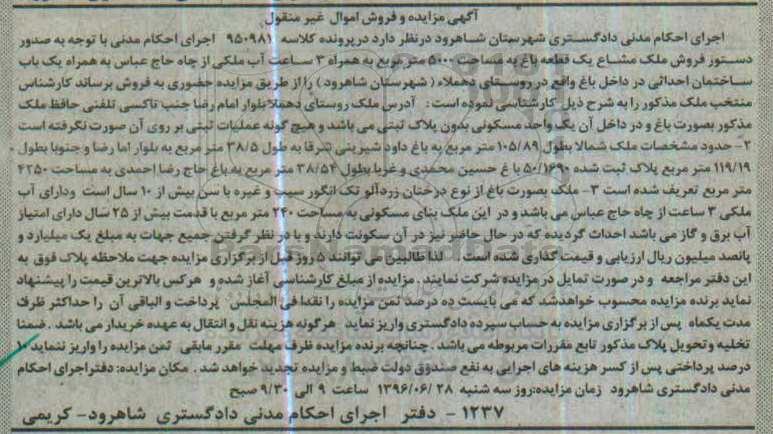 آگهی مزایده و فروش اموال غیر منقول
اجرای احکام مدنی دادگستری شهرستان شاهرود درنظر دارد درپرونده کلاسه ۹۵۰۹۸۱ اجرای احکام مدنی با توجه به صدور
دستور فروش ملک مشاع یک قطعه باغ به مساحت ۵۰۰۰ متر مربع به همراه ۳ ساعت آب ملکی از چاه حاج عباس به همراه یک باب
ساختمان احداثی در داخل باغ واقع در روستای دهملاء ( شهرستان شاهرود ) را از طریق مزایده حضوری به فروش برساند کارشناس
منتخب ملک مذکور را به شرح ذیل کارشناسی نموده است : آدرس ملک روستای دهملا بلوار امام رضا جنب تاکسی تلفنی حافظ ملک
مذکور بصورت باغ و در داخل آن یک واحد مسکونی بدون پلاک ثبتی می باشد و هیچ گونه عملیات ثبتی بر روی آن صورت نگرفته است
۲- حدود مشخصات ملک شمالا بطول ۱۰۵/۸۹ متر مربع به باغ داود شیرینی شرقا به طول ۳۸/۵ متر مربع به بلوار اما رضا و جنوبا بطول
۱۱۹/۱۹ متر مربع پلاک ثبت شده ۵۰/۱۶۹۰ با غ حسین محمدی و غربا بطول ۳۸/۵۴ متر مربع به باغ حاج رضا احمدی به مساحت ۴۲۵۰
متر مربع تعریف شده است ۳- ملک بصورت باغ از نوع درختان زردآلو تک انگور سیب و غیره با سن بیش از ۱۰ سال است ودارای آب
ملکی ۳ ساعت از چاه حاج عباس می باشد و در این ملک بنای مسکونی به مساحت ۲۴۰ متر مربع با قدمت بیش از ۲۵ سال دارای امتیاز
آب برق و گاز می باشد احداث گردیده که در حال حاضر نیز در آن سکونت دارند و با در نظر گرفتن جمیع جهات به مبلغ یک میلیارد و
پانصد میلیون ریال ارزیابی و قیمت گذاری شده است . لذا طالبین می توانند ۵ روز قبل از برگزاری مزایده جهت ملاحظه پلاک فوق به
این دفتر مراجعه و در صورت تمایل در مزایده شرکت نمایند . مزایده از مبلغ کارشناسی آغاز شده و هرکس بالاترین قیمت را پیشنهاد
نماید برنده مزایده محسوب خواهدشد که می بایست ده درصد ثمن مزایده را نقدا فی المجلس پرداخت و الباقی آن را حداکثر ظرف
مدت یکماه پس از برگزاری مزایده به حساب سپرده دادگستری واریز نماید هرگونه هزینه نقل و انتقال به عهده خریدار می باشد . ضمنا
تخلیه وتحویل پلاک مذکور تابع مقررات مربوطه می باشد . چنانچه برنده مزایده ظرف مهلت مقرر مابقی ثمن مزایده را واریز ننماید ۱۰
درصد پرداختی پس از کسر هزینه های اجرایی به نفع صندوق دولت ضبط و مزایده تجدید خواهد شد . مکان مزایده: دفتر اجرای احکام
مدنی دادگستری شاهرود زمان مزایده:روز سه شنبه ۲۸ /۱۳۹۶/۰۶ ساعت ۹ الی ۹/۳۰ صبح
۱۲۳۷ - دفتر اجرای احکام مدنی دادگستری شاهرود- کریمی